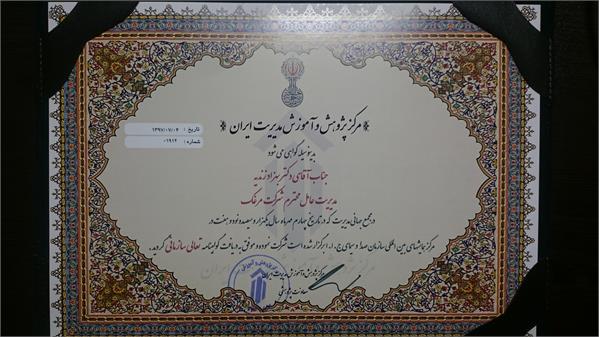 مرکز پژوهش و آموزش مدیریت ایران
تاریخ : ۱۳۹۷/۰۷/۰۴
شماره : ۰۱۹۱۴
بدینوسیله گواهی می شود
جناب آقای دکتر بهزاد زندیه
مدیریت عامل محترم شرکت مرفک
در مجمع جهانی مدیریت که در تاریخ چهارم مهرماه سال یکهزار و سیصد و نود و هفت در
مرکز همایشهای بین المللی سازمان صدا و سیمای ج.ا. برگزار شده است شرکت نموده و موفق به دریافت گواهینامه تعالی سازمانی گردید.
مرکز پژوهش و آموزش مدیریت ایران
معاونت پژوهشی